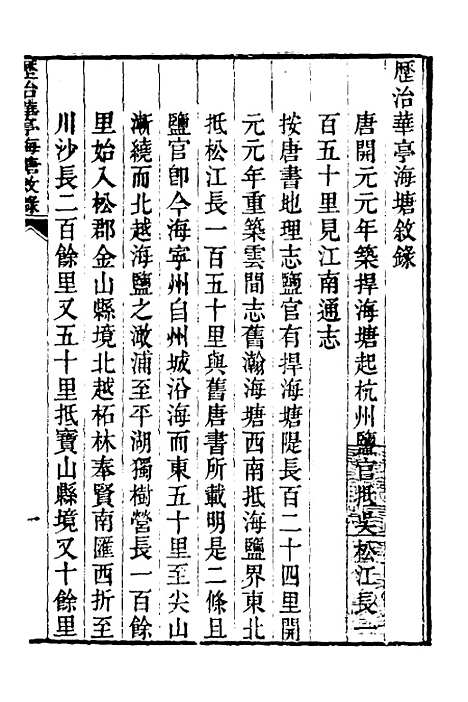 歷治華亭海塘敘錄
唐開元元年築捍海塘起杭州鹽官抵吳松江長一
百五十里見江南通志
按唐書地理志鹽官有捍海塘隄長百二十四里開
元元年重築雲間志舊瀚海塘西南抵海鹽界東北
抵松江長一百五十里與舊唐書所載明是二條且
鹽官卽今海寧州自州城沿海而東五十里至尖山
漸繞而北越海鹽之澉浦至平湖獨樹營長一百餘
里始入松郡金山縣境北越柘林奉賢南匯西折至
川沙長二百餘里又五十里抵寶山縣境又十餘里
歷治華亭海塘敘錄
一